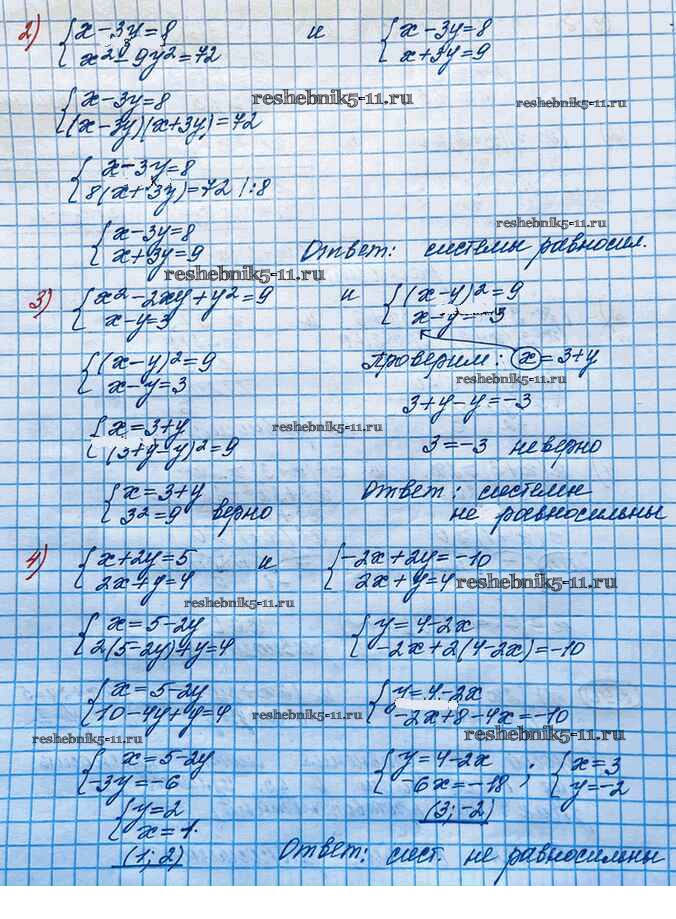 2) { x - 3y = 8 и { x - 3y = 8
x² - 9y² = 72 x + 3y = 9
{ x - 3y = 8
reshebnik5-11.ru reshebnik5-11.ru
(x - 3y)(x + 3y) = 72
{ x - 3y = 8
8(x + 3y) = 72 | :8
reshebnik5-11.ru
{ x - 3y = 8
x + 3y = 9 Ответ: системы равносил.
reshebnik5-11.ru
3) { x² - 2xy + y² = 9 и { (x - y)² = 9
x - y = 3 x - y = -3
{ (x - y)² = 9 Проверим: x = 3 + y
x - y = 3 reshebnik5-11.ru
3 + y - y = -3
{ x = 3 + y reshebnik5-11.ru
(3 + y - y)² = 9 3 = -3 неверно
{ x = 3 + y Ответ: системы
3² = 9 верно не равносильны
4) { x + 2y = 5 и { -2x + 2y = -10
2x + y = 4 2x + y = 4 reshebnik5-11.ru
reshebnik5-11.ru
{ x = 5 - 2y { y = 4 - 2x
2(5 - 2y) + y = 4 -2x + 2(4 - 2x) = -10
{ x = 5 - 2y { y = 4 - 2x
10 - 4y + y = 4 reshebnik5-11.ru -2x + 8 - 4x = -10
reshebnik5-11.ru reshebnik5-11.ru
{ x = 5 - 2y { y = 4 - 2x ; { x = 3
-3y = -6 -6x = -18 y = -2
{ y = 2 (3; -2)
x = 1.
(1; 2) Ответ: сист. не равносильны